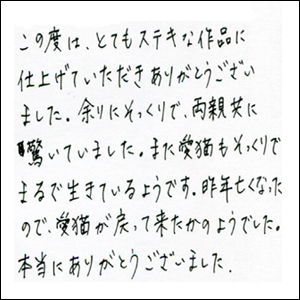 この度は、とてもステキな作品に
仕上げていただきありがとうござい
ました。余りにそっくりで、両親共に
驚いていました。また愛猫もそっくりで
まるで生きているようです。昨年亡くなった
ので、愛猫が戻って来たかのようでした。
本当にありがとうございました.